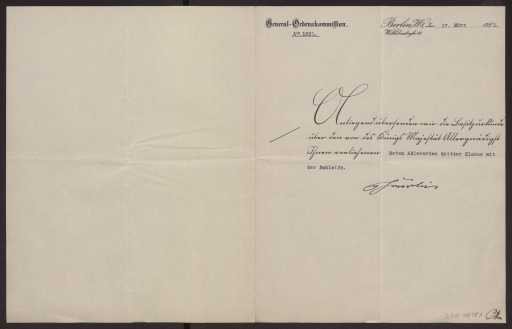 General-Ordenskommission.
Berlin, W. den 17. März
Wilhelmstraße
Anliegend übersenden wir die Besitzurkunde
über den von des Königs Majestät Allergnädigst
Ihnen verliehenen Roten Adlerorden dritter Klasse mit
der Schleife.